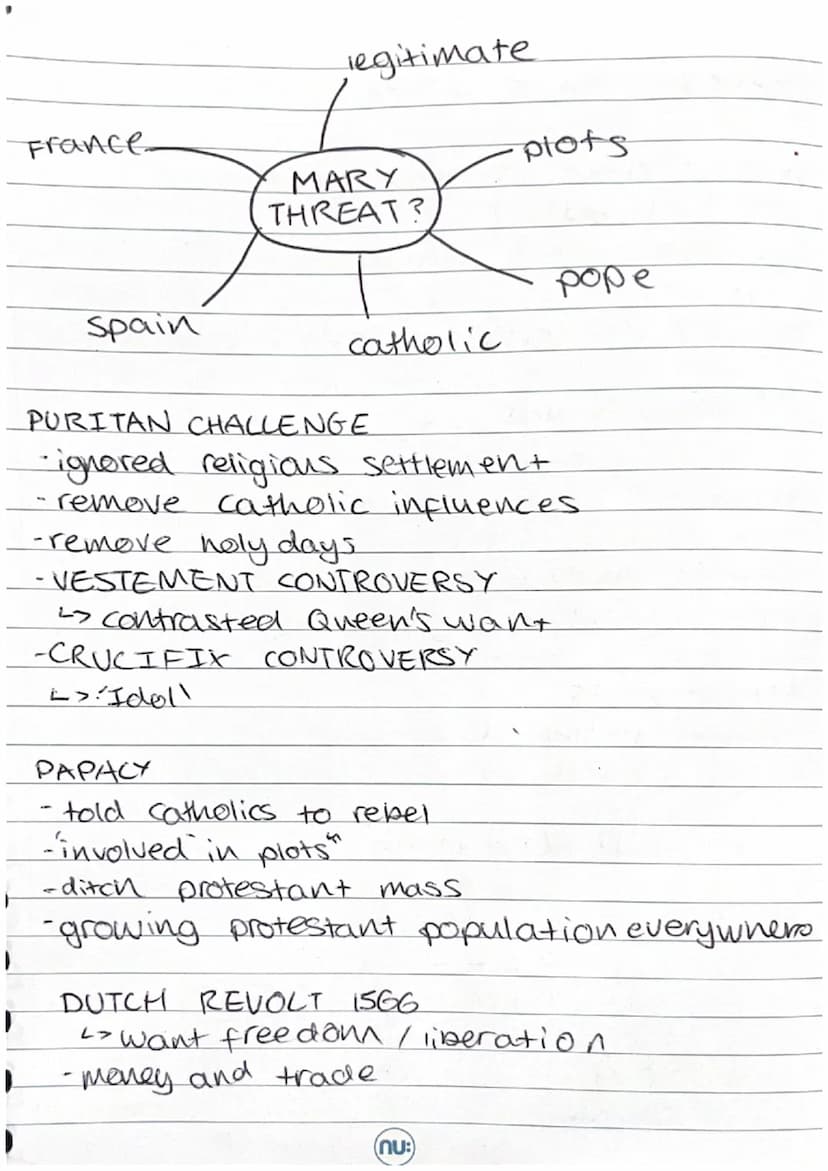 legitimate
France
plots
MARY
THREAT?
pope
spain
catholic
PURITAN CHALLENGE
- ignored religious settlement
- remove catholic influences
- remove holy days
- VESTEMENT CONTROVERSY
↳ contrasted Queen's want
- CRUCIFIX CONTROVERSY
↳ 'Idol'
PAPACY
- told catholics to rebel
- "involved in plots"
- ditch protestant mass
- growing protestant population everywhere
DUTCH REVOLT 1566
↳ want freedom / liberation
- money and trade
nu: